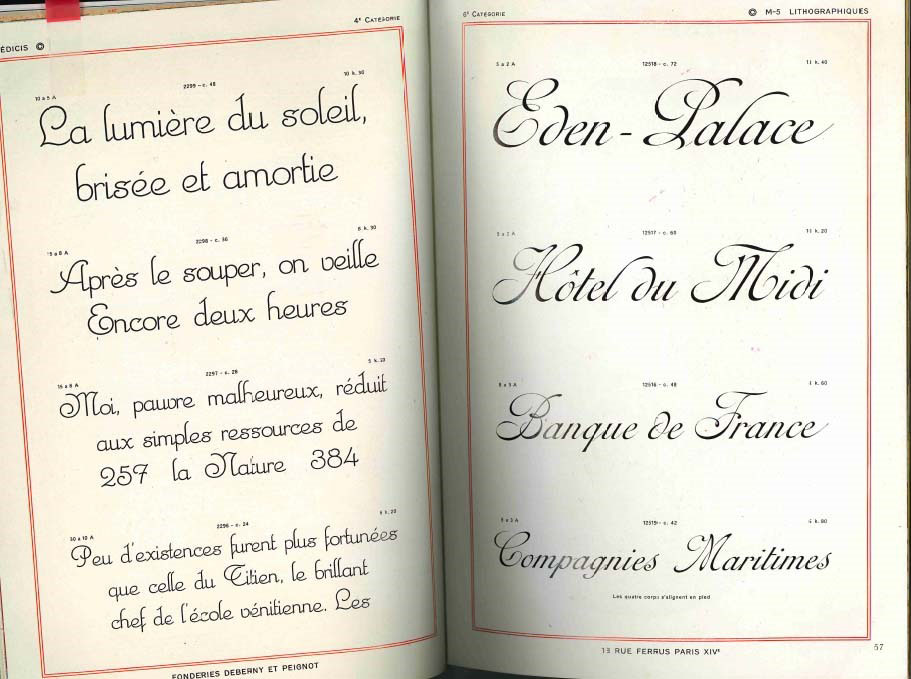 ÉDICIS ©
4ᵉ CATÉGORIE
10 a 5 A
2299 - c. 48
10 k. 30
La lumière du soleil,
brisée et amortie
15 a 8 A
2298 - c. 36
6 k. 30
Après le souper, on veille
Encore deux heures
16 a 8 A
2297 - c. 28
5 k. 20
Moi, pauvre malheureux, réduit
aux simples ressources de
257 la Nature 384
2296 - c. 24
Peu d'existences furent plus fortunées
que celle du Titien, le brillant
chef de l'école vénitienne. Les
FONDERIES DEBERNY ET PEIGNOT
6ᵉ CATÉGORIE
© M-5 LITHOGRAPHIQUES
3 a 2 A
12518 - c. 72
11 k. 40
Eden - Palace
3 a 2 A
12517 - c. 60
11 k. 20
Hôtel du Midi
12516 - c. 48
k. 60
Banque de France
12515 - c. 42
k. 80
Compagnies Maritimes
Les quatre corps s'alignent en pied
18 RUE FERRUS PARIS XIVᵉ
57